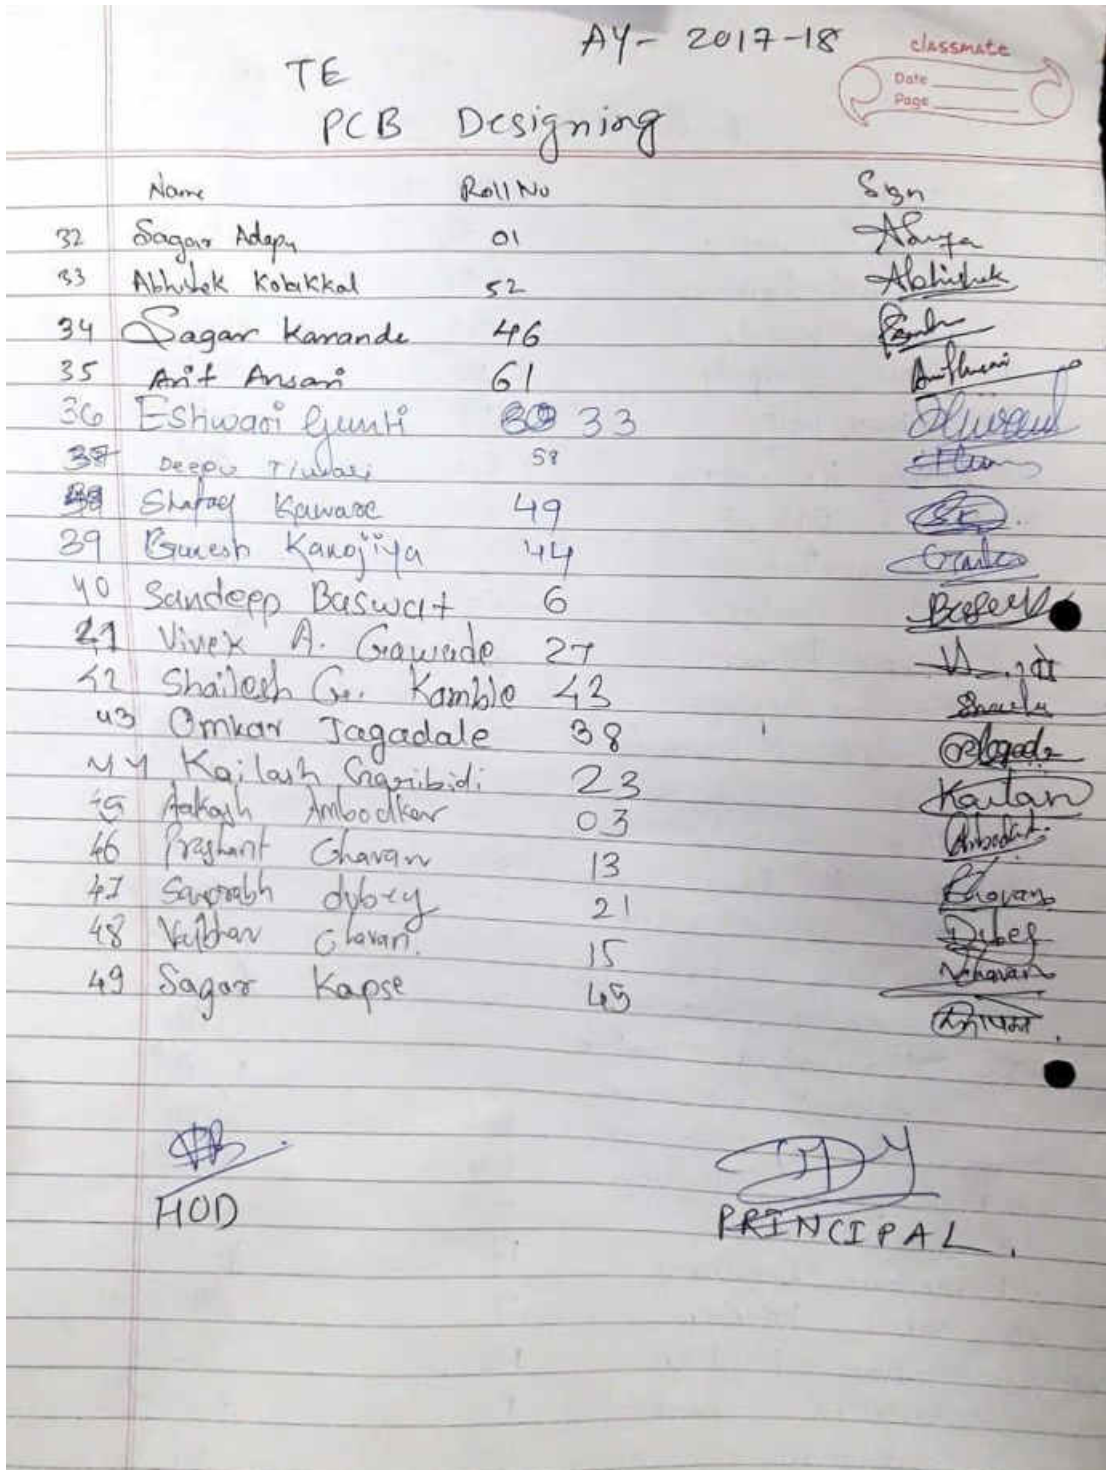 AY- 2017-18
classmate
Date
Page
TE
PCB Designing
Name Roll No Sign
32 Sagar Adapu 01
33 Abhishek Kolakkal 52 Abhishek
34 Sagar Karande 46
35 Arif Ansari 61
36 Eshwari Gunti 33
37 Deepu Tiwari 58
38 Kaware 49
39 Ganesh Kanojiya 44
40 Sandeep Baswat 6
41 Vivek A. Gawade 27
42 Shailesh G. Kamble 43
43 Omkar Jagadale 38
44 Kailash Garibidi 23 Kailash
45 Aakash Ambodkar 03
46 Prashant Chavan 13 Chavan
47 Saurabh dubey 21 Dubey
48 Vaibhav Chavan. 15
49 Sagar Kapse 45
HOD
PRINCIPAL.